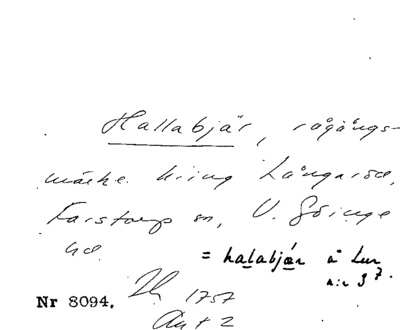 Hallabjär, rågångs-
märke kring Långaröd,
Farstorp sn, V. Göinge
hd.
= halabjær å Lur
n:r 37.
Nr 8094.
1757
Akt 2